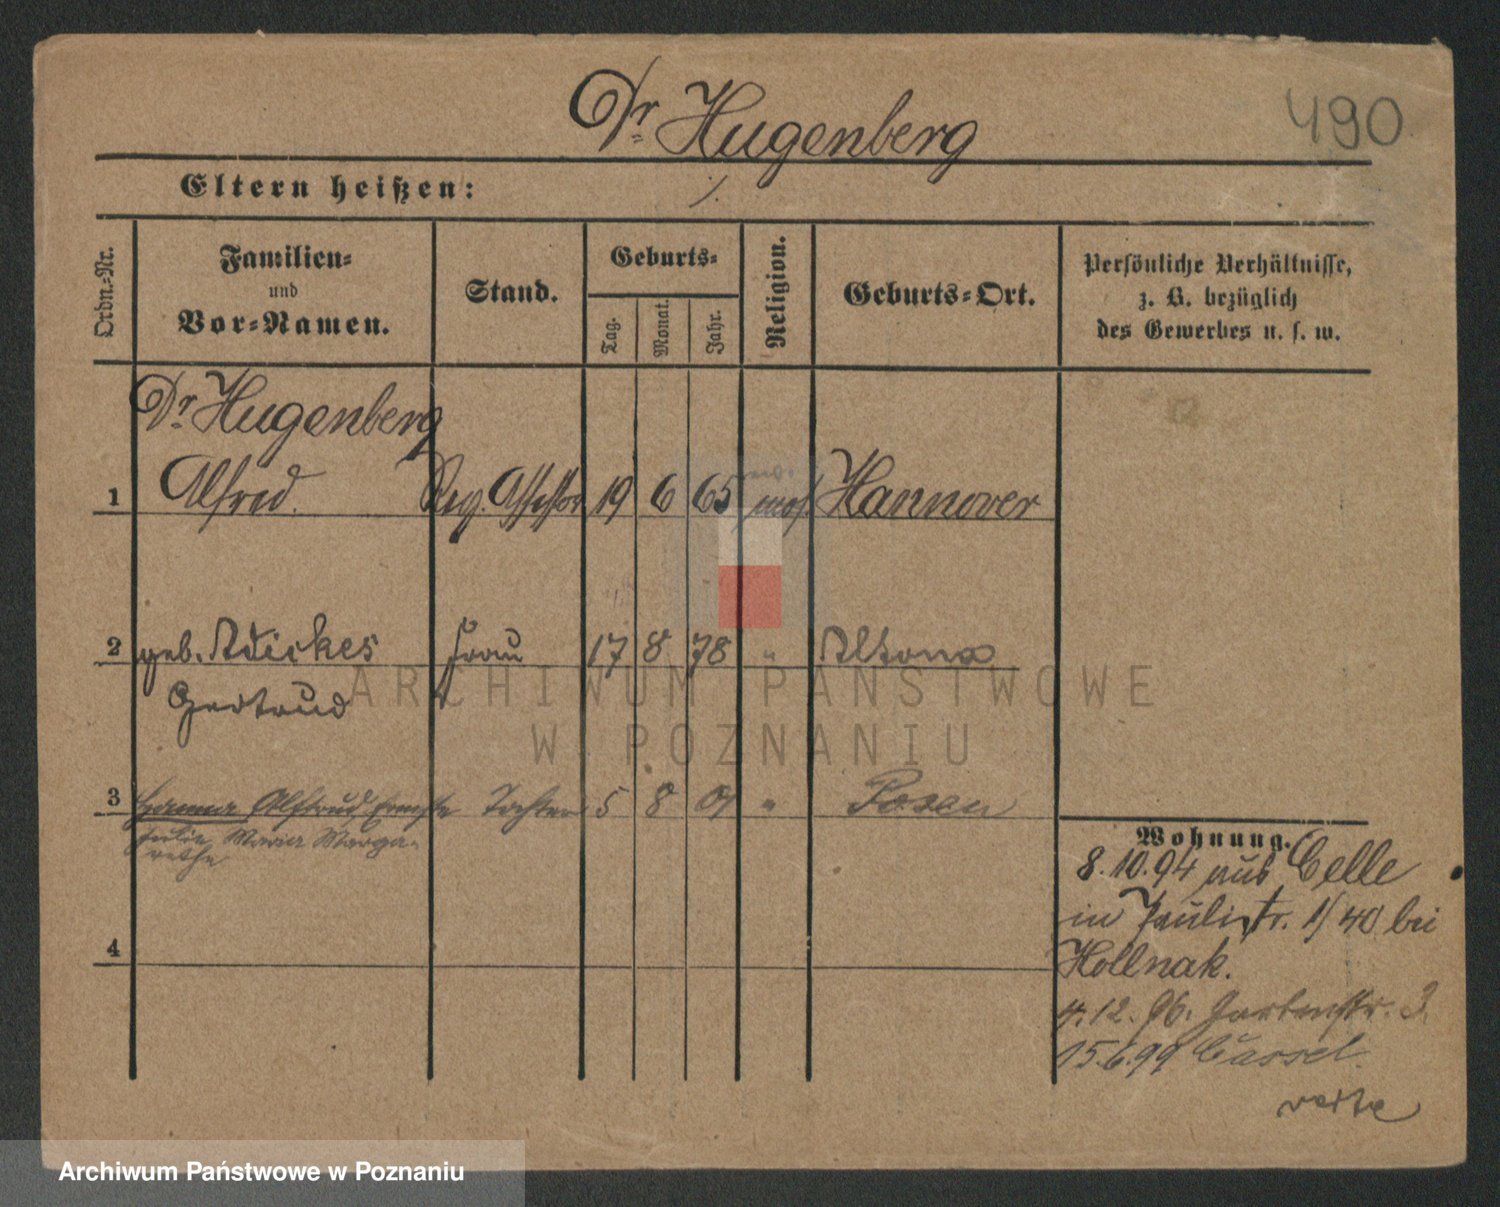 Dr. Hugenberg
490
Eltern heißen: ./.
Ordn.-Nr.
Familien-
und
Vor-Namen.
Stand.
Geburts-
Tag.
Monat.
Jahr.
Religion.
Geburts-Ort.
Persönliche Verhältnisse,
z. B. bezüglich
des Gewerbes u. s. w.
Dr. Hugenberg
1 Alfred. Reg. Assessor 19 6 65 Hannover
2 geb. Adickes Frau 17 8 78 " Altona
Gertrud
3 Hanna Alftrud Tochter 5 8 01 " Posen
Julie Maria Marga-
rethe
4
Wohnung.
8.10.94 aus Celle
in Paulistr. 1/40 bei
Hollnak.
4.12.96. Gartenstr. 3.
15.6.99 Cassel
ARCHIWUM PAŃSTWOWE
W POZNANIU
Archiwum Państwowe w Poznaniu